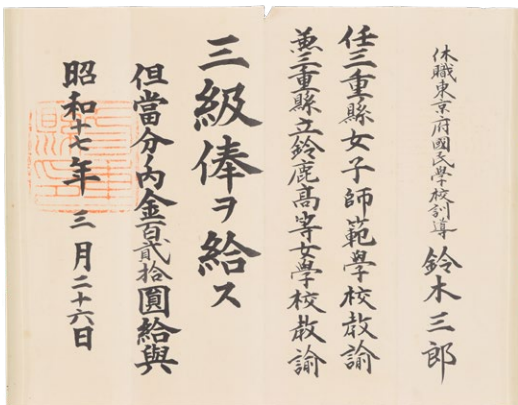 休職東京府國民學校訓導 鈴木三郎
任三重縣女子師範學校教諭
兼三重縣立鈴鹿高等女學校教諭
三級俸ヲ給ス
但當分ノ內金百貳拾圓給與
昭和十七年三月二十六日